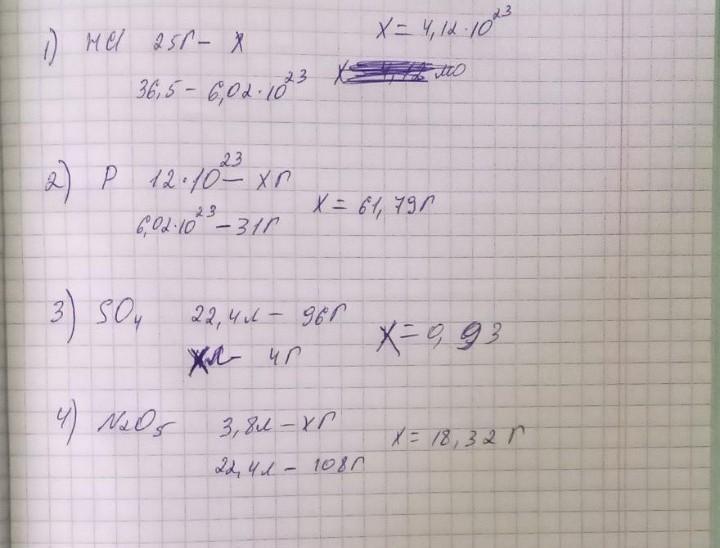 1) HCl 25г – x x = 4,12·10²³
36,5 – 6,02·10²³
2) P 12·10²³ – xг
6,02·10²³ – 31г x = 61,79г
3) SO₄ 22,4л – 96г x = 0,93
xл – 4г
4) N₂O₅ 3,8л – xг x = 18,32г
22,4л – 108г